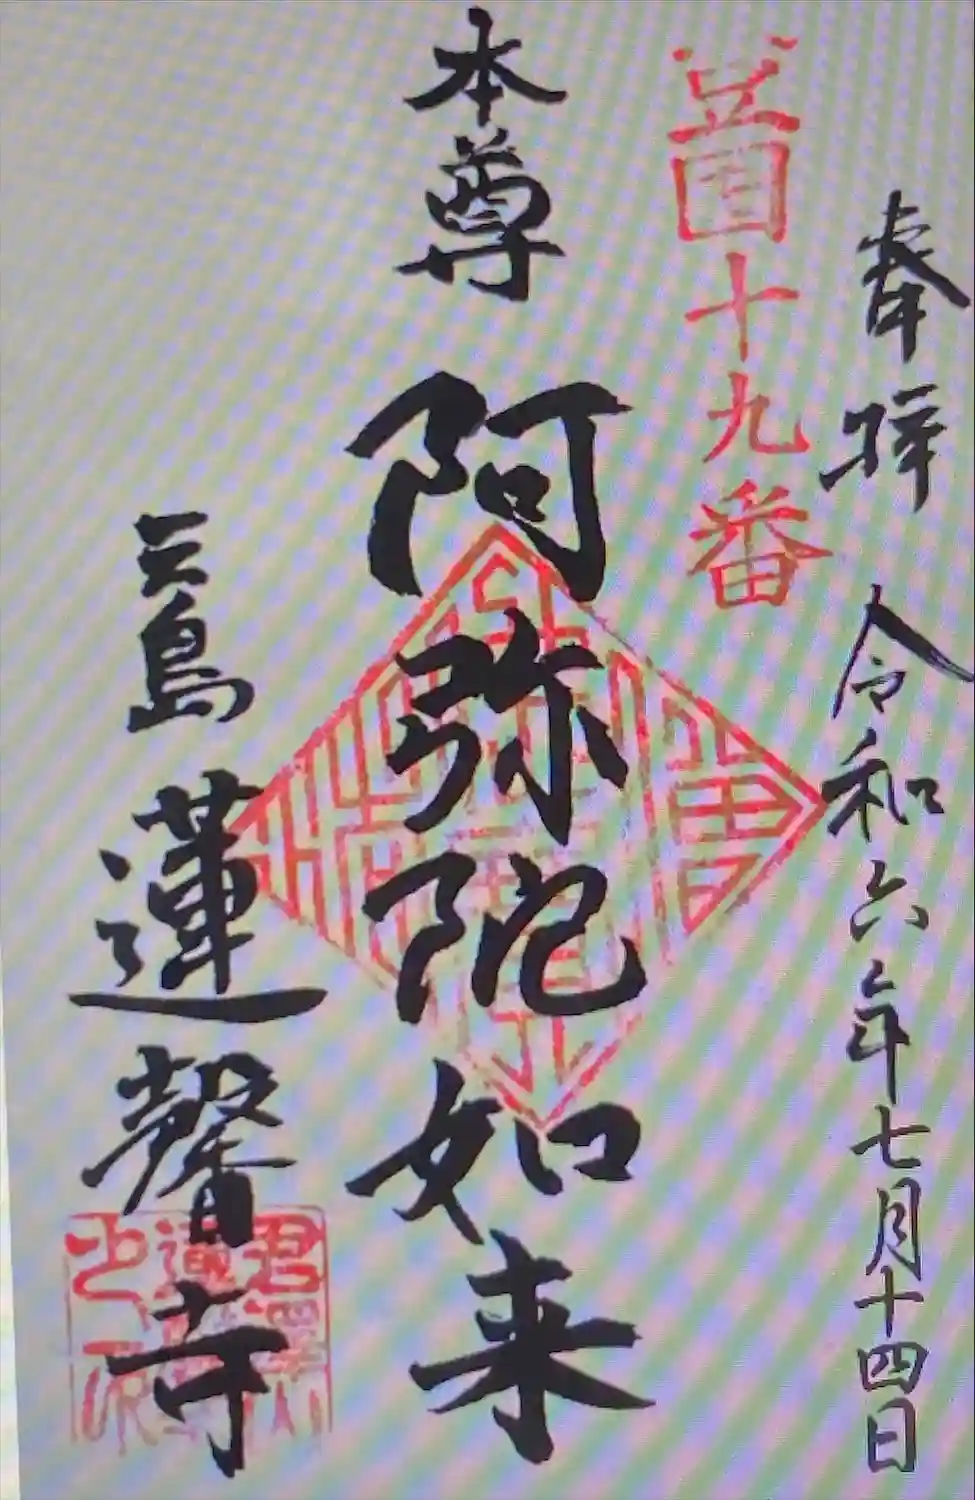 奉拝　令和六年七月十四日
豆国十九番
本尊　阿弥陀如来
三島　蓮馨寺